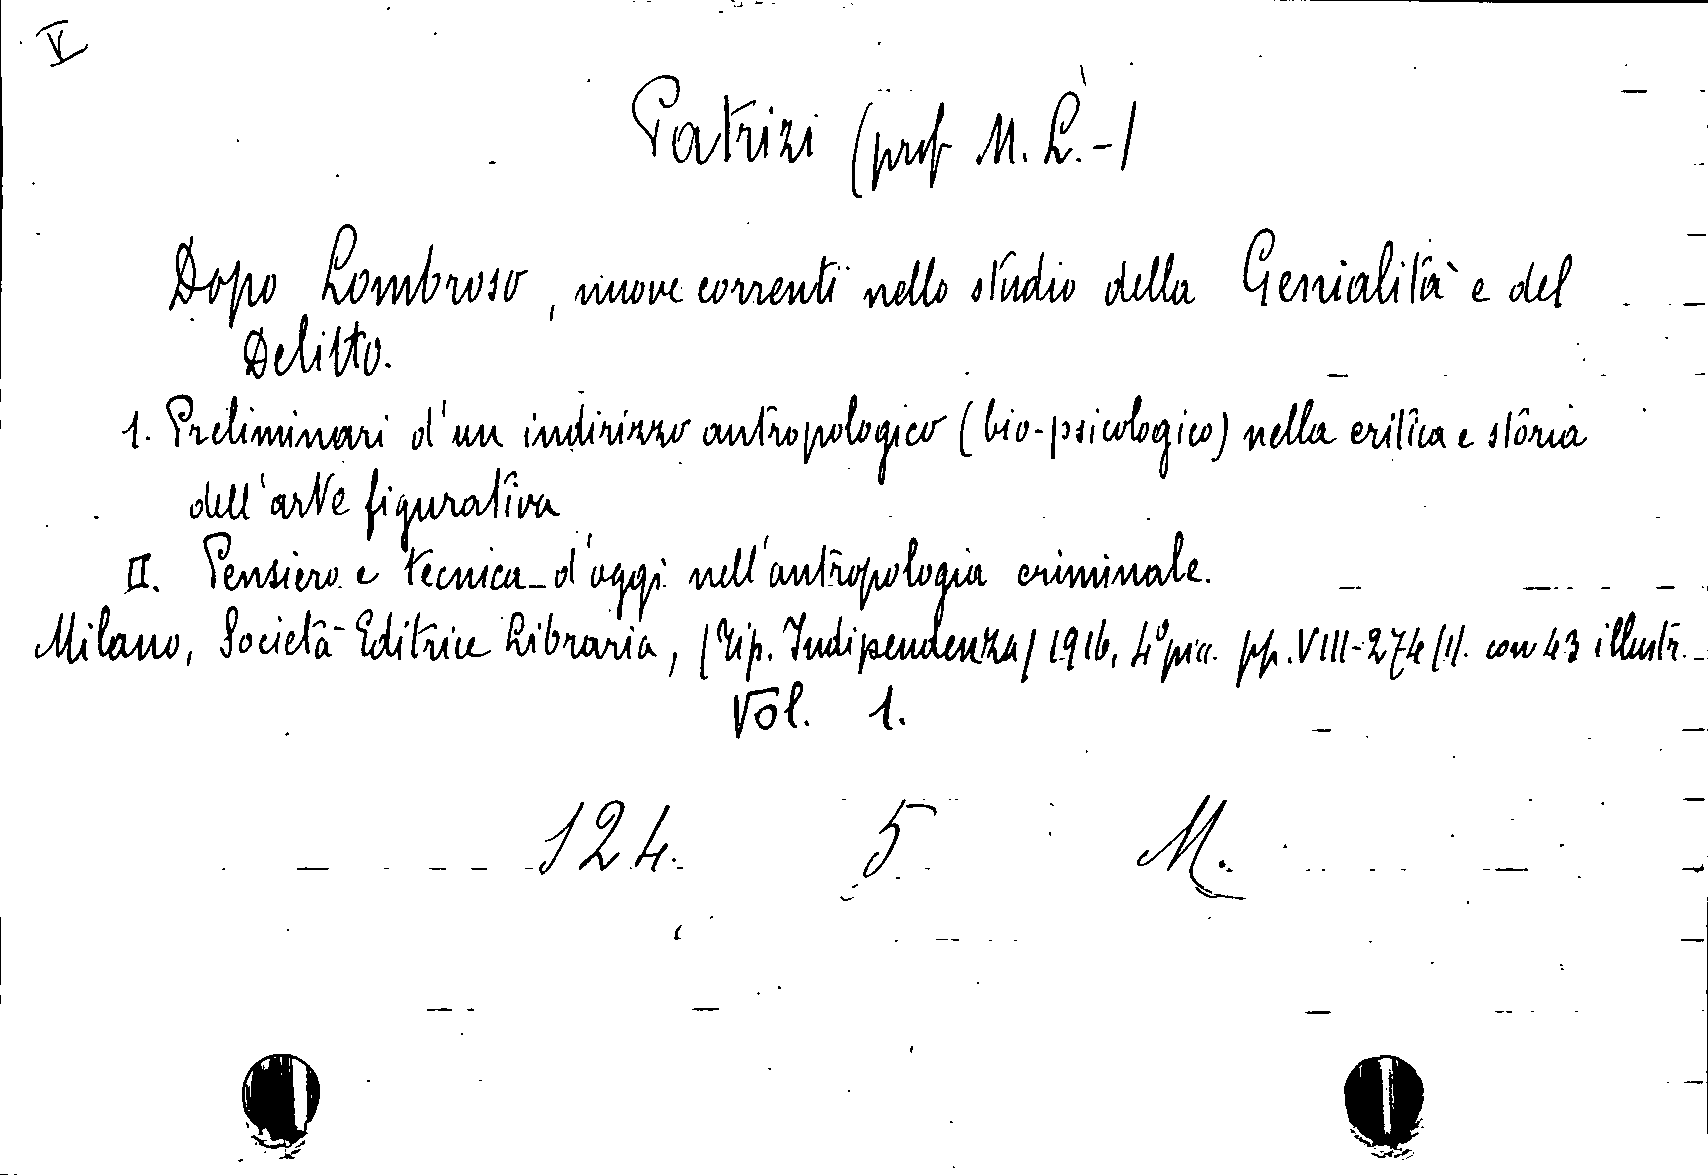 V
Patrizi (prof M. L.-)
Dopo Lombroso, nuove correnti nello studio della Genialità e del
Delitto.
1. Preliminari d'un indirizzo antropologico (bio-psicologico) nella critica e storia
dell'arte figurativa
II. Pensiero e tecnica d'oggi nell'antropologia criminale.
Milano, Società Editrice Libraria, (Tip. Indipendenza) 1916, 4° picc. pp. VIII-274 (1). con 43 illustr.
Vol. 1.
124. 5 M.